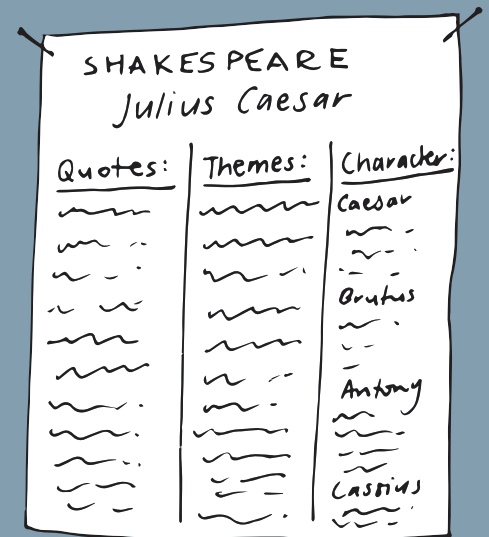 SHAKESPEARE
Julius Caesar
Quotes: Themes: Character:
Caesar
Brutus
Antony
Cassius